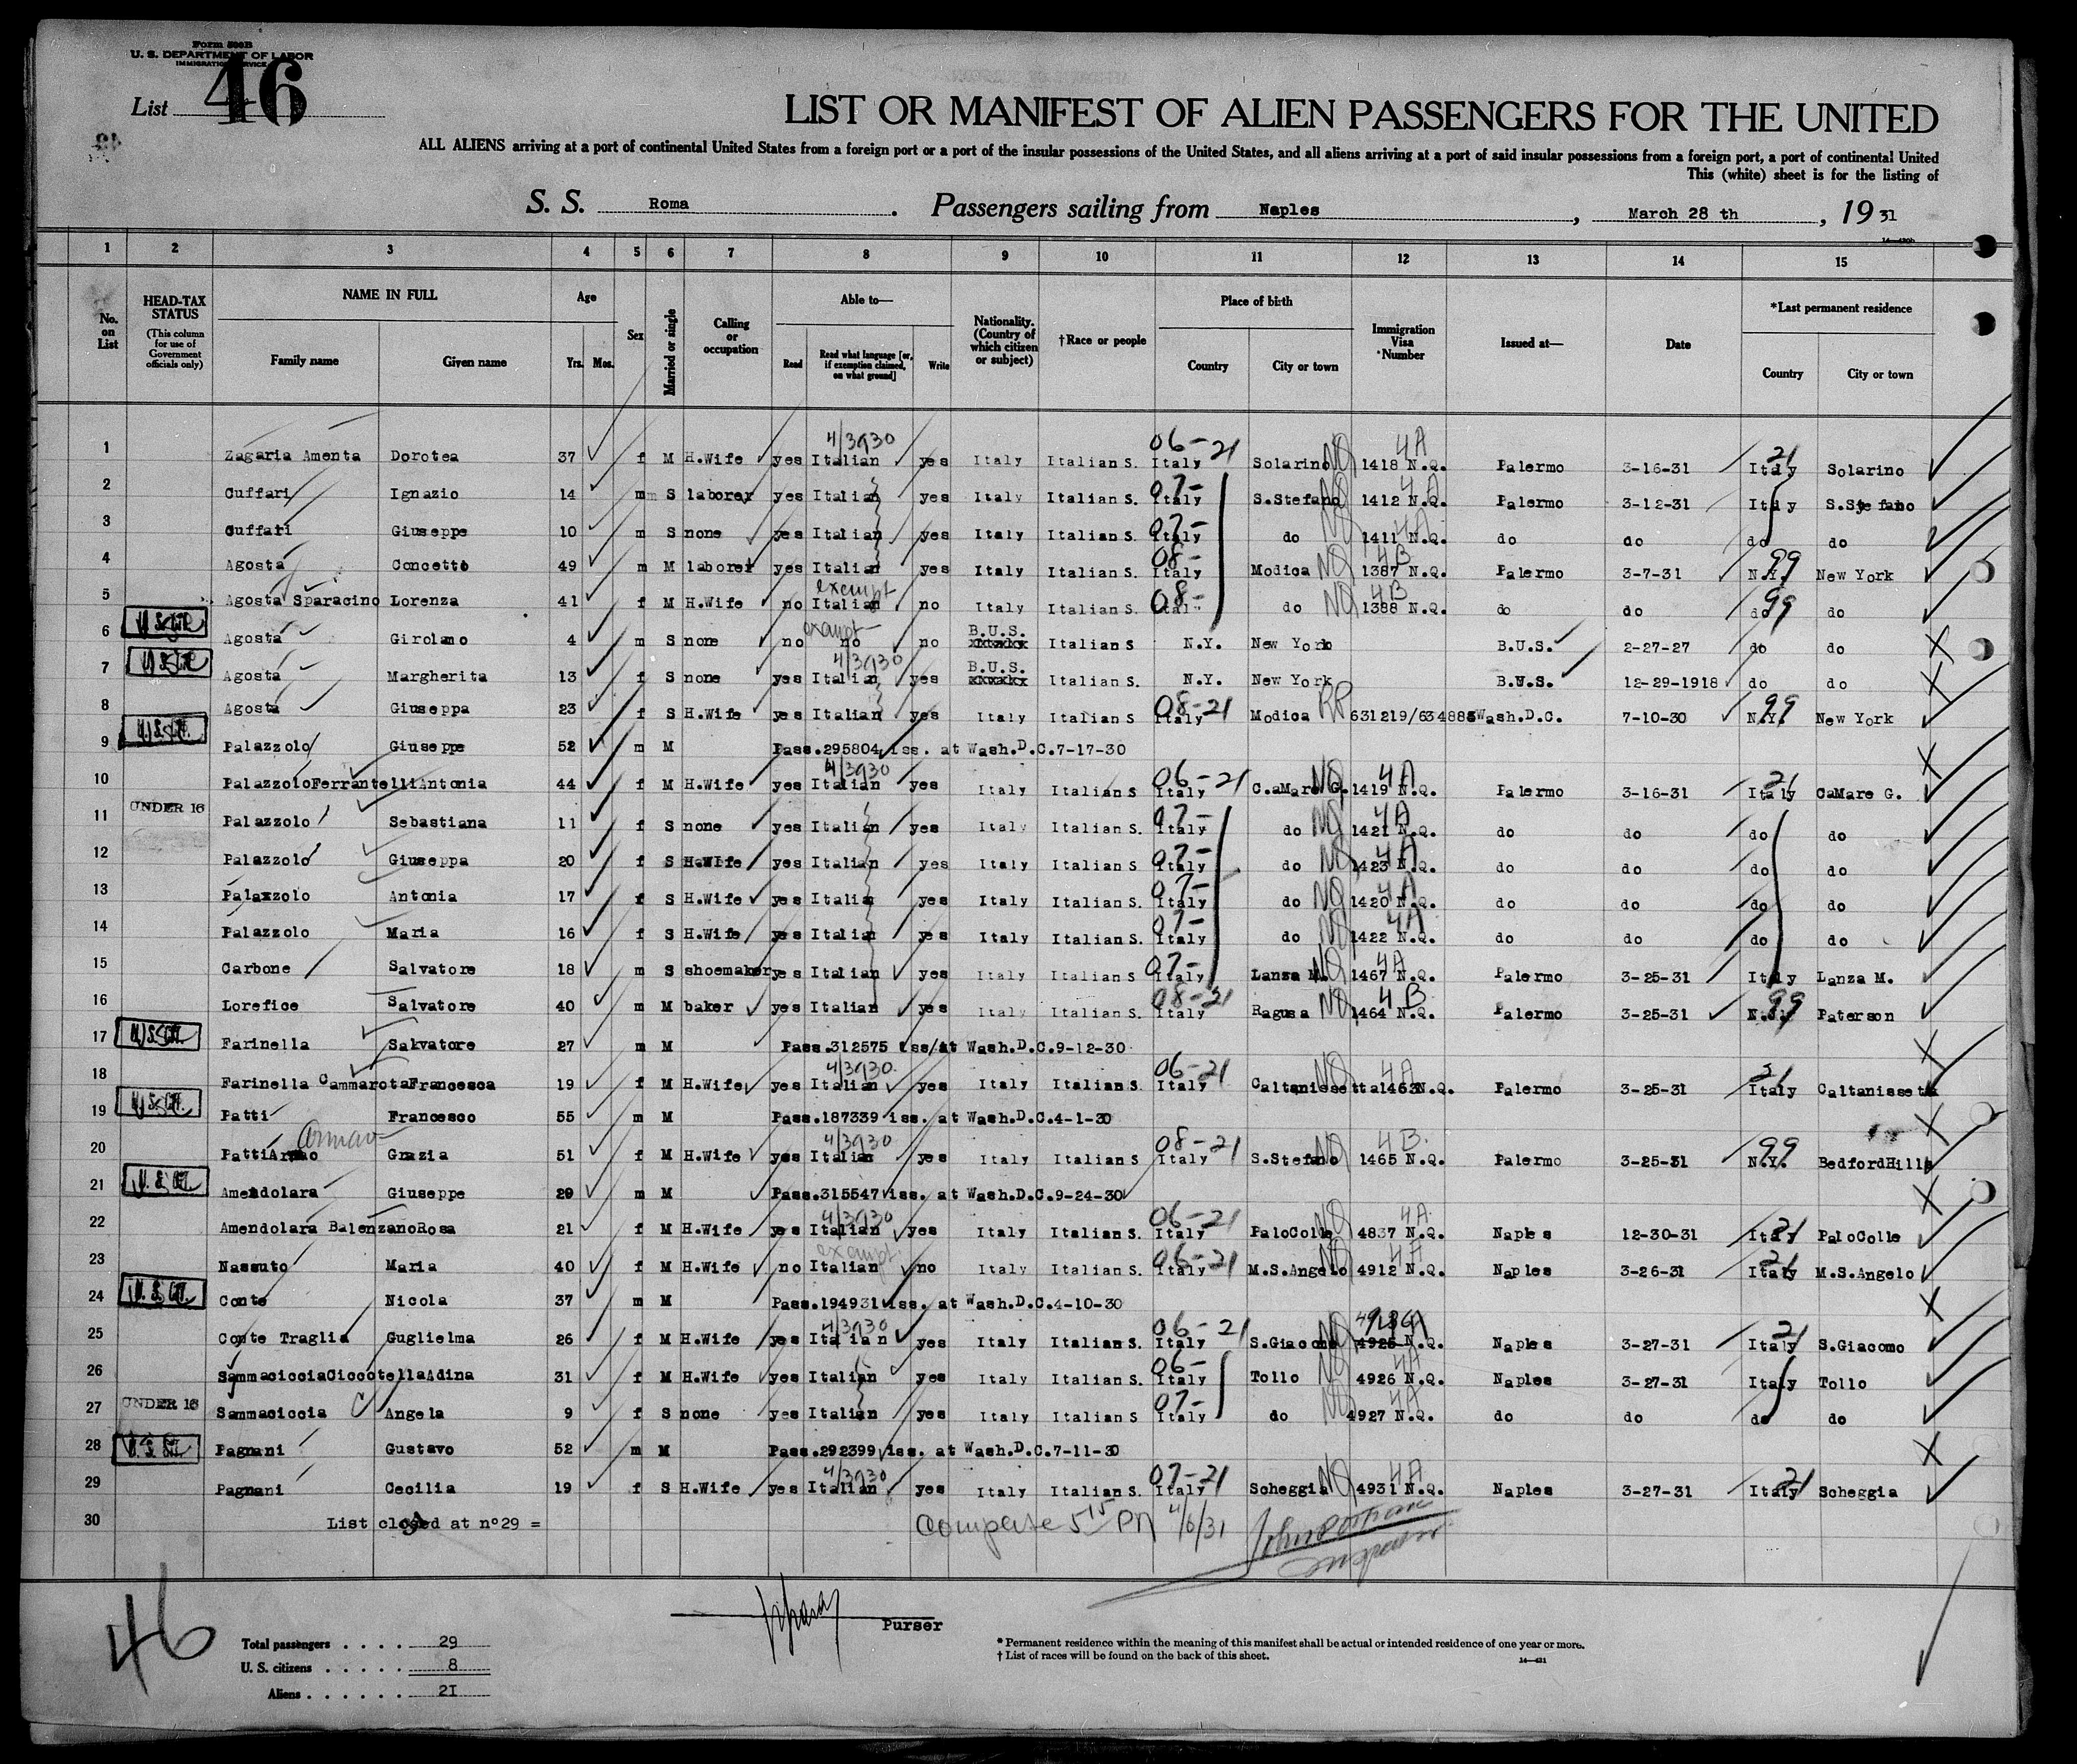 Form 500B
U. S. DEPARTMENT OF LABOR
IMMIGRATION SERVICE
List 46
LIST OR MANIFEST OF ALIEN PASSENGERS FOR THE UNITED
ALL ALIENS arriving at a port of continental United States from a foreign port or a port of the insular possessions of the United States, and all aliens arriving at a port of said insular possessions from a foreign port, a port of continental United
This (white) sheet is for the listing of
S. S. Roma . Passengers sailing from Naples , March 28 th , 19 31
1 2 3 4 5 6 7 8 9 10 11 12 13 14 15
No. on List HEAD-TAX STATUS (This column for use of Government officials only) NAME IN FULL Family name Given name Age Yrs. Mos. Sex Married or single Calling or occupation Able to— Read Read what language [or, if exemption claimed, on what ground] Write Nationality. (Country of which citizen or subject) †Race or people Place of birth Country City or town Immigration Visa Number Issued at— Date *Last permanent residence Country City or town
4/3930 06-21 NQ 4A 21
1 Zagaria Amenta Dorotea 37 f M H.Wife yes Italian yes Italy Italian S. Italy Solarino 1418 N.Q. Palermo 3-16-31 Italy Solarino
07- NQ 4A
2 Cuffari Ignazio 14 m S laborer yes Italian yes Italy Italian S. Italy S.Stefano 1412 N.Q. Palermo 3-12-31 Italy S.Stefano
07- NQ 4A
3 Cuffari Giuseppe 10 m S none yes Italian yes Italy Italian S. Italy do 1411 N.Q. do do do do
08- NQ 4B 99
4 Agosta Concetto 49 m M laborer yes Italian yes Italy Italian S. Italy Modica 1387 N.Q. Palermo 3-7-31 N.Y. New York
exempt 08- NQ 4B 99
5 Agosta Sparacino Lorenza 41 f M H.Wife no Italian no Italy Italian S. Italy do 1388 N.Q. do do do do
exempt B.U.S.
6 Agosta Girolamo 4 m S none no no no Italian S N.Y. New York B.U.S. 2-27-27 do do X
4/3930 B.U.S.
7 Agosta Margherita 13 f S none yes Italian yes Italian S. N.Y. New York B.U.S. 12-29-1918 do do X
08-21 RP 99
8 Agosta Giuseppa 23 f S H.Wife yes Italian yes Italy Italian S Italy Modica 631219/634883 Wash.D.C. 7-10-30 N.Y. New York
9 Palazzolo Giuseppe 52 m M Pass.295804 iss. at Wash.D.C.7-17-30 X
4/3930 06-21 NQ 4A 21
10 Palazzolo Ferrantelli Antonia 44 f M H.Wife yes Italian yes Italy Italian S Italy C.aMare G. 1419 N.Q. Palermo 3-16-31 Italy CaMare G.
UNDER 16 07- NQ 4A
11 Palazzolo Sebastiana 11 f S none yes Italian yes Italy Italian S. Italy do 1421 N.Q. do do do do
07- NQ 4A
12 Palazzolo Giuseppa 20 f S H.Wife yes Italian yes Italy Italian S. Italy do 1423 N.Q. do do do do
07- NQ 4A
13 Palazzolo Antonia 17 f S H.Wife yes Italian yes Italy Italian S. Italy do 1420 N.Q. do do do do
07- NQ 4A
14 Palazzolo Maria 16 f S H.Wife yes Italian yes Italy Italian S. Italy do 1422 N.Q. do do do do
07- NQ 4A
15 Carbone Salvatore 18 m S shoemaker yes Italian yes Italy Italian S. Italy Lanza M. 1467 N.Q. Palermo 3-25-31 Italy Lanza M.
08-21 NQ 4B 99
16 Lorefice Salvatore 40 m M baker yes Italian yes Italy Italian S. Italy Ragusa 1464 N.Q. Palermo 3-25-31 Paterson
17 Farinella Salvatore 27 m M Pass.312575 iss/at Wash.D.C.9-12-30 X
4/3930 06-21 NQ 4A 21
18 Farinella Cammarota Francesca 19 f M H.Wife yes Italian yes Italy Italian S. Italy Caltanissetta 1463 N.Q. Palermo 3-25-31 Italy Caltanissetta
19 Patti Francesco 55 m M Pass.187339 iss. at Wash.D.C.4-1-30 X
4/3930 08-21 NQ 4B 99
20 Patti Grazia 51 f M H.Wife yes Italian yes Italy Italian S Italy S.Stefano 1465 N.Q. Palermo 3-25-31 N.Y. BedfordHills
21 Amendolara Giuseppe 29 m M Pass.315547 iss. at Wash.D.C.9-24-30 X
4/3930 06-21 NQ 4A 21
22 Amendolara Balenzano Rosa 21 f M H.Wife yes Italian yes Italy Italian S. Italy PaloColle 4837 N.Q. Naples 12-30-31 Italy PaloColle
exempt 06-21 NQ 4A 21
23 Nassuto Maria 40 f M H.Wife no Italian no Italy Italian S. Italy M.S.Angelo 4912 N.Q. Naples 3-26-31 Italy M.S.Angelo
24 Conte Nicola 37 m M Pass.194931 iss. at Wash.D.C.4-10-30 X
4/3930 06-21 NQ 21
25 Conte Traglia Guglielma 26 f M H.Wife yes Italian yes Italy Italian S. Italy S.Giacomo 4925 N.Q. Naples 3-27-31 Italy S.Giacomo
06- NQ 4A
26 Sammaciccia Ciccotella Adina 31 f M H.Wife yes Italian yes Italy Italian S. Italy Tollo 4926 N.Q. Naples 3-27-31 Italy Tollo
UNDER 16 07- NQ 4A
27 Sammaciccia Angela 9 f S none yes Italian yes Italy Italian S Italy do 4927 N.Q. do do do do
28 Pagnani Gustavo 52 m M Pass.292399 iss. at Wash.D.C.7-11-30 X
4/3930 07-21 NQ 4A 21
29 Pagnani Cecilia 19 f S H.Wife yes Italian yes Italy Italian S. Italy Scheggia 4931 N.Q. Naples 3-27-31 Italy Scheggia
30 List closed at n°29 = 5 15 PM 4/6/31
46
Purser
Total passengers . . . . 29
U. S. citizens . . . . . 8
Aliens . . . . . . 21
* Permanent residence within the meaning of this manifest shall be actual or intended residence of one year or more.
† List of races will be found on the back of this sheet.